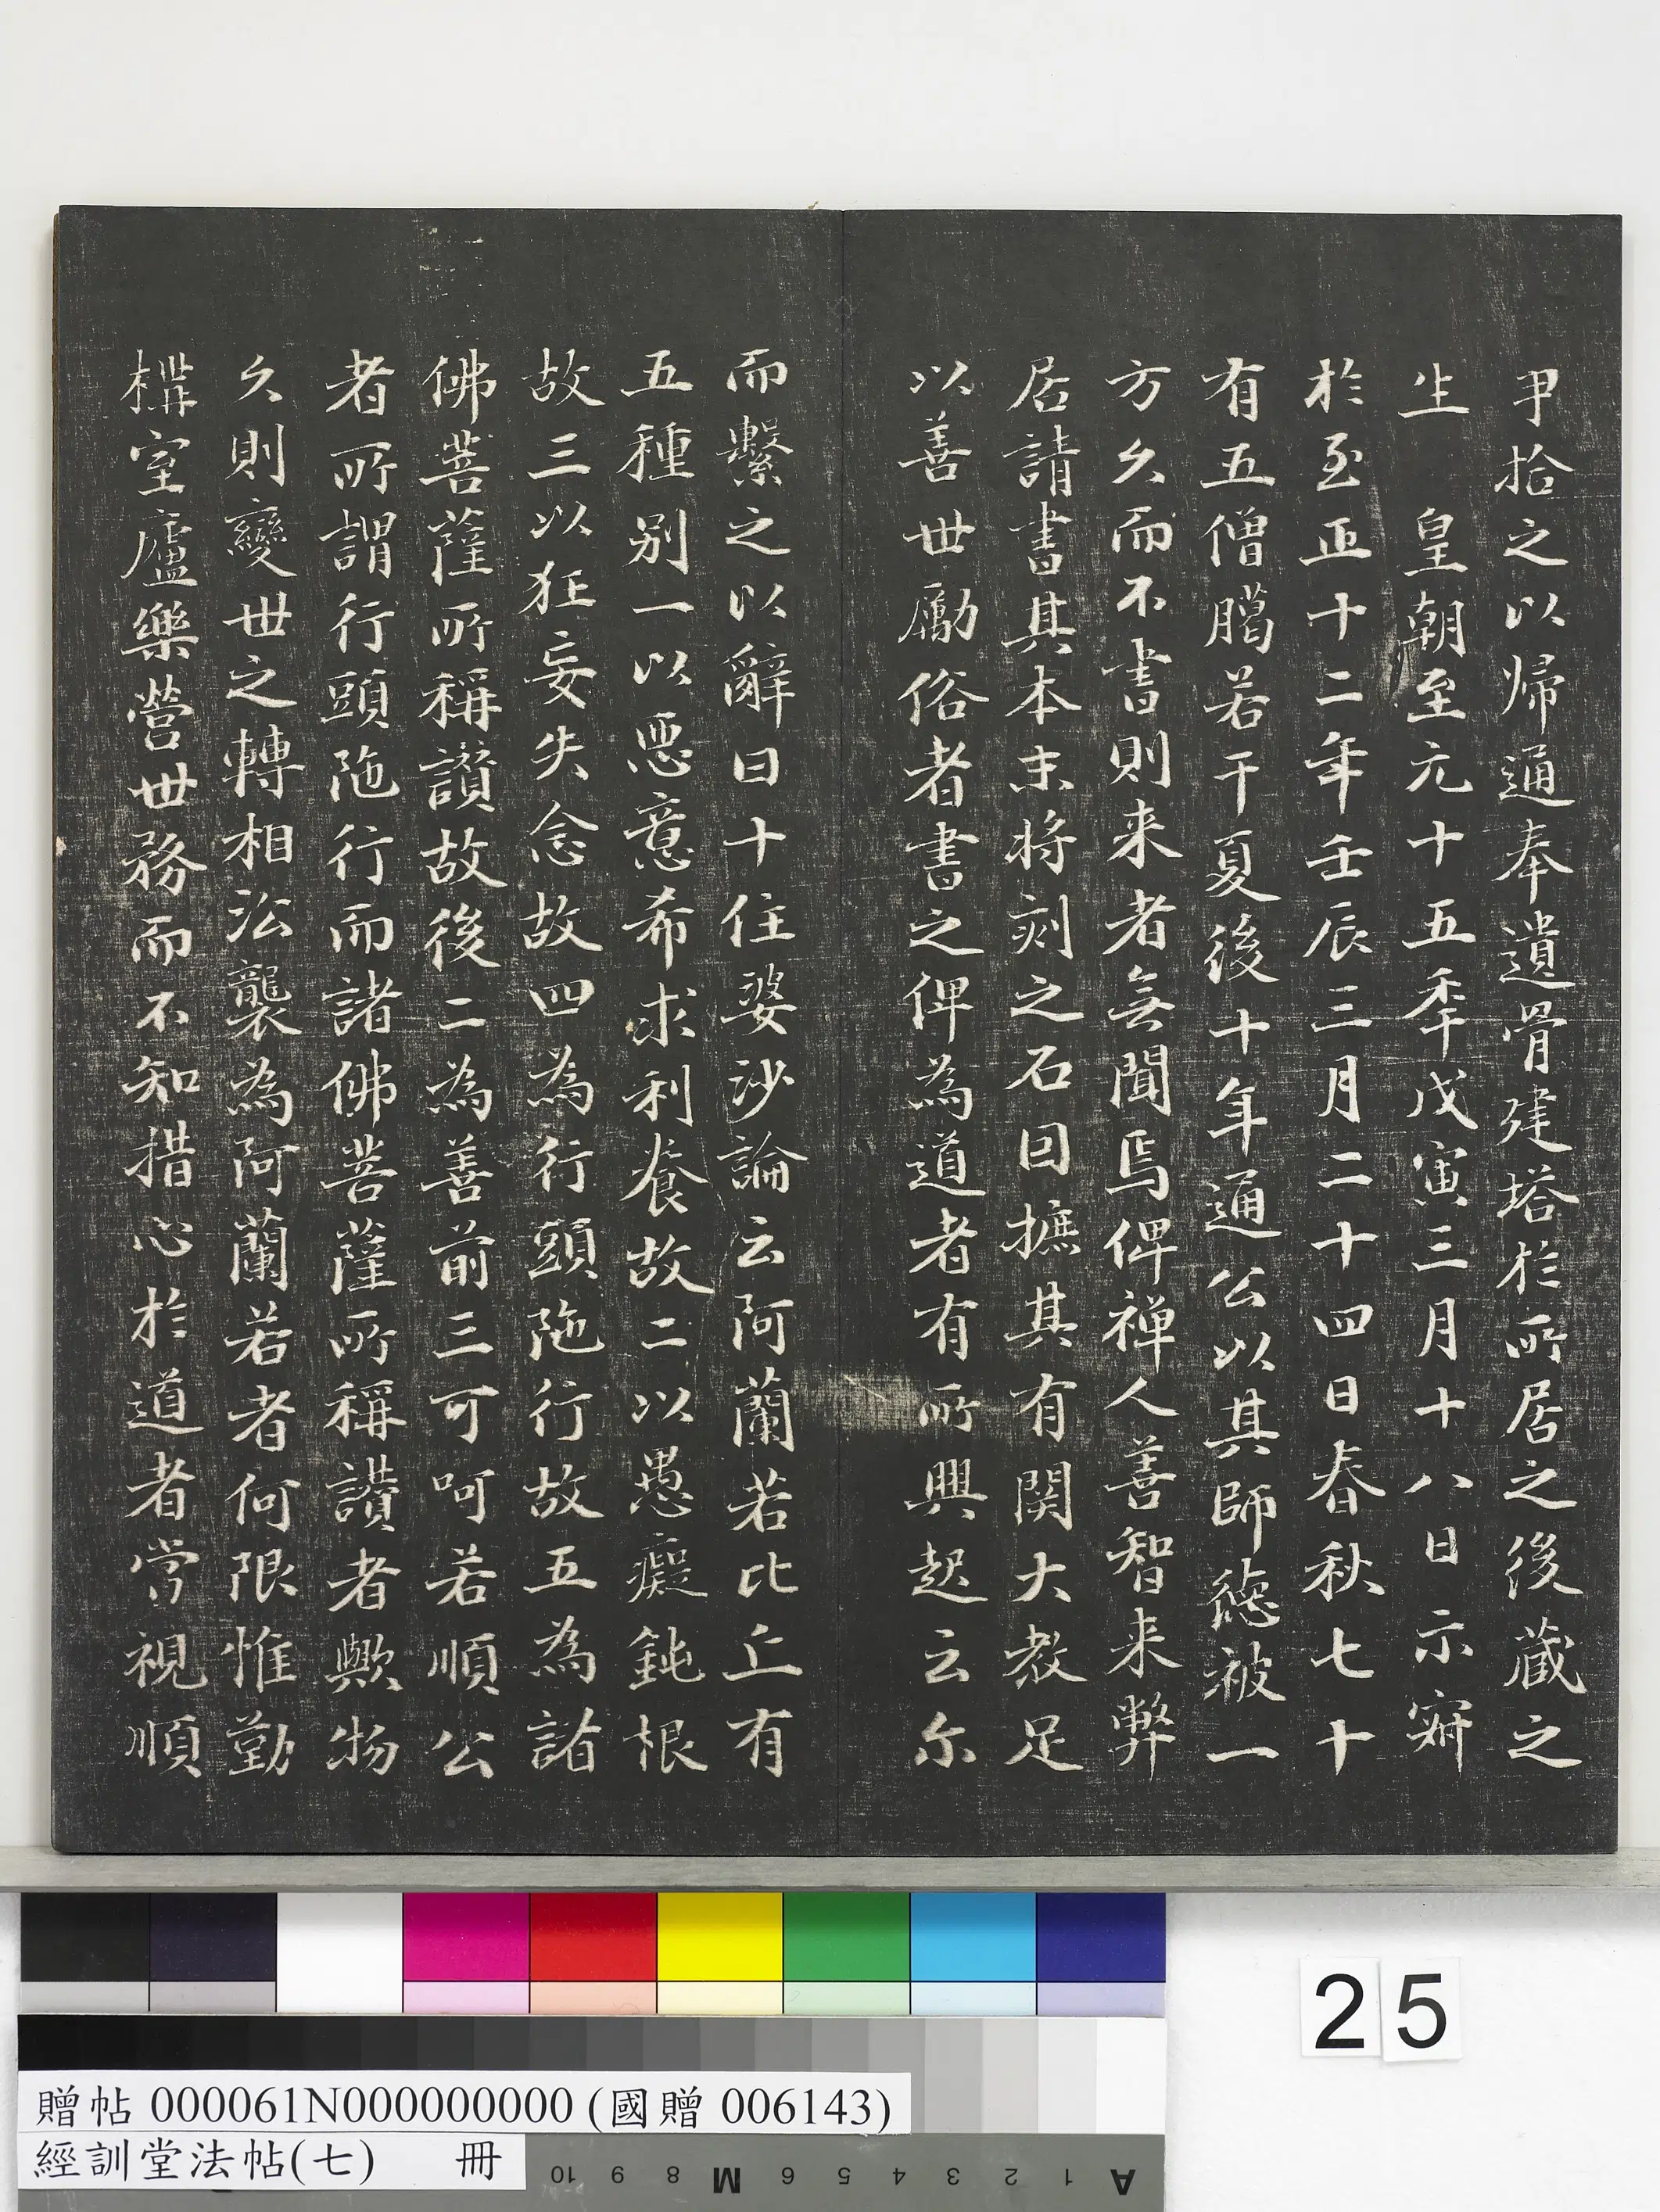 尹拾之以帰通奉遺骨建塔於所居之後藏之
生　皇朝至元十五季戊寅三月十八日示寂
於至正十二年壬辰三月二十四日春秋七十
有五僧臈若干夏後十年通公以其師德被一
方久而不書則来者無聞焉俾禅人善智来弊
居請書其本末将刻之石因摭其有関大教足
以善世勵俗者書之俾為道者有所興起云尔
而繫之以辭曰十住婆沙論云阿蘭若比丘有
五種别一以惡意希求利養故二以愚癡鈍根
故三以狂妄失念故四為行頭陁行故五為諸
佛菩薩所稱讃故後二為善前三可呵若順公
者所謂行頭陁行而諸佛菩薩所稱讃者歟物
久則變世之轉相㳒襲為阿蘭若者何限惟勤
構室廬樂營世務而不知措心於道者嘗視順
25
贈帖 000061N000000000 (國贈 006143)
經訓堂法帖(七)　冊
10 9 8 M 6 5 4 3 2 1 A